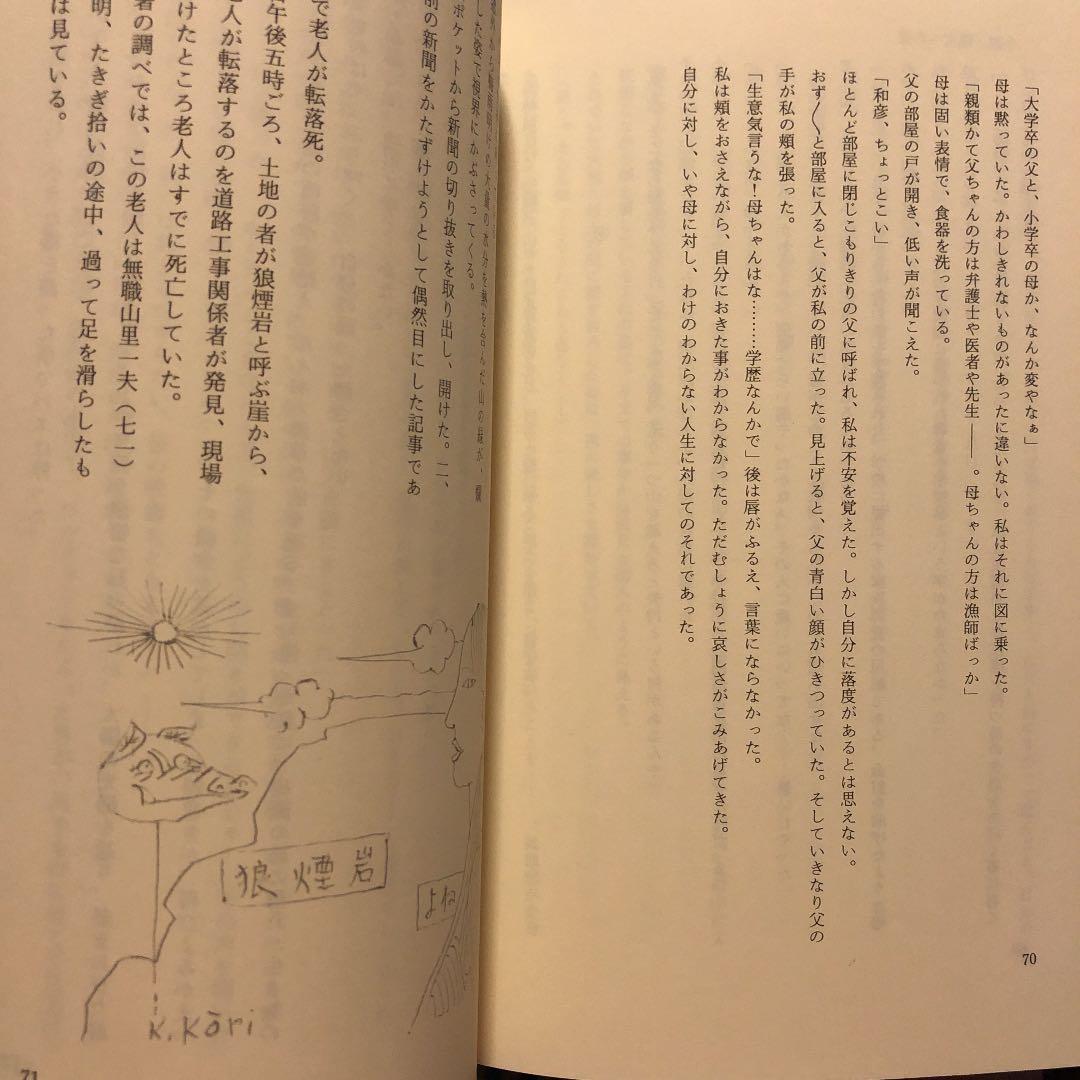 「大学卒の父と、小学卒の母か、なんか変やなぁ」
母は黙っていた。かわしきれないものがあったに違いない。私はそれに図に乗った。
「親類かて父ちゃんの方は弁護士や医者や先生――。母ちゃんの方は漁師ばっか」
母は固い表情で、食器を洗っている。
父の部屋の戸が開き、低い声が聞こえた。
「和彦、ちょっとこい」
ほとんど部屋に閉じこもりきりの父に呼ばれ、私は不安を覚えた。しかし自分に落度があるとは思えない。
おず〱と部屋に入ると、父が私の前に立った。見上げると、父の青白い顔がひきつっていた。そしていきなり父の
手が私の頬を張った。
「生意気言うな！母ちゃんはな………学歴なんかで」後は唇がふるえ、言葉にならなかった。
私は頬をおさえながら、自分におきた事がわからなかった。ただむしょうに哀しさがこみあげてきた。
自分に対し、いや母に対し、わけのわからない人生に対してのそれであった。
70
の水分を熱を含んだ山の緑が、
した姿で視界にかぶさってくる。
ポケットから新聞の切り抜きを取り出し、開けた。二、
前の新聞をかたずけようとして偶然目にした記事であ
で老人が転落死。
午後五時ごろ、土地の者が狼煙岩と呼ぶ崖から、
人が転落するのを道路工事関係者が発見、現場
けたところ老人はすでに死亡していた。
者の調べでは、この老人は無職山里一夫（七一）
明、たきぎ拾いの途中、過って足を滑らしたも
は見ている。
狼煙岩
よね
K.Kōri
71